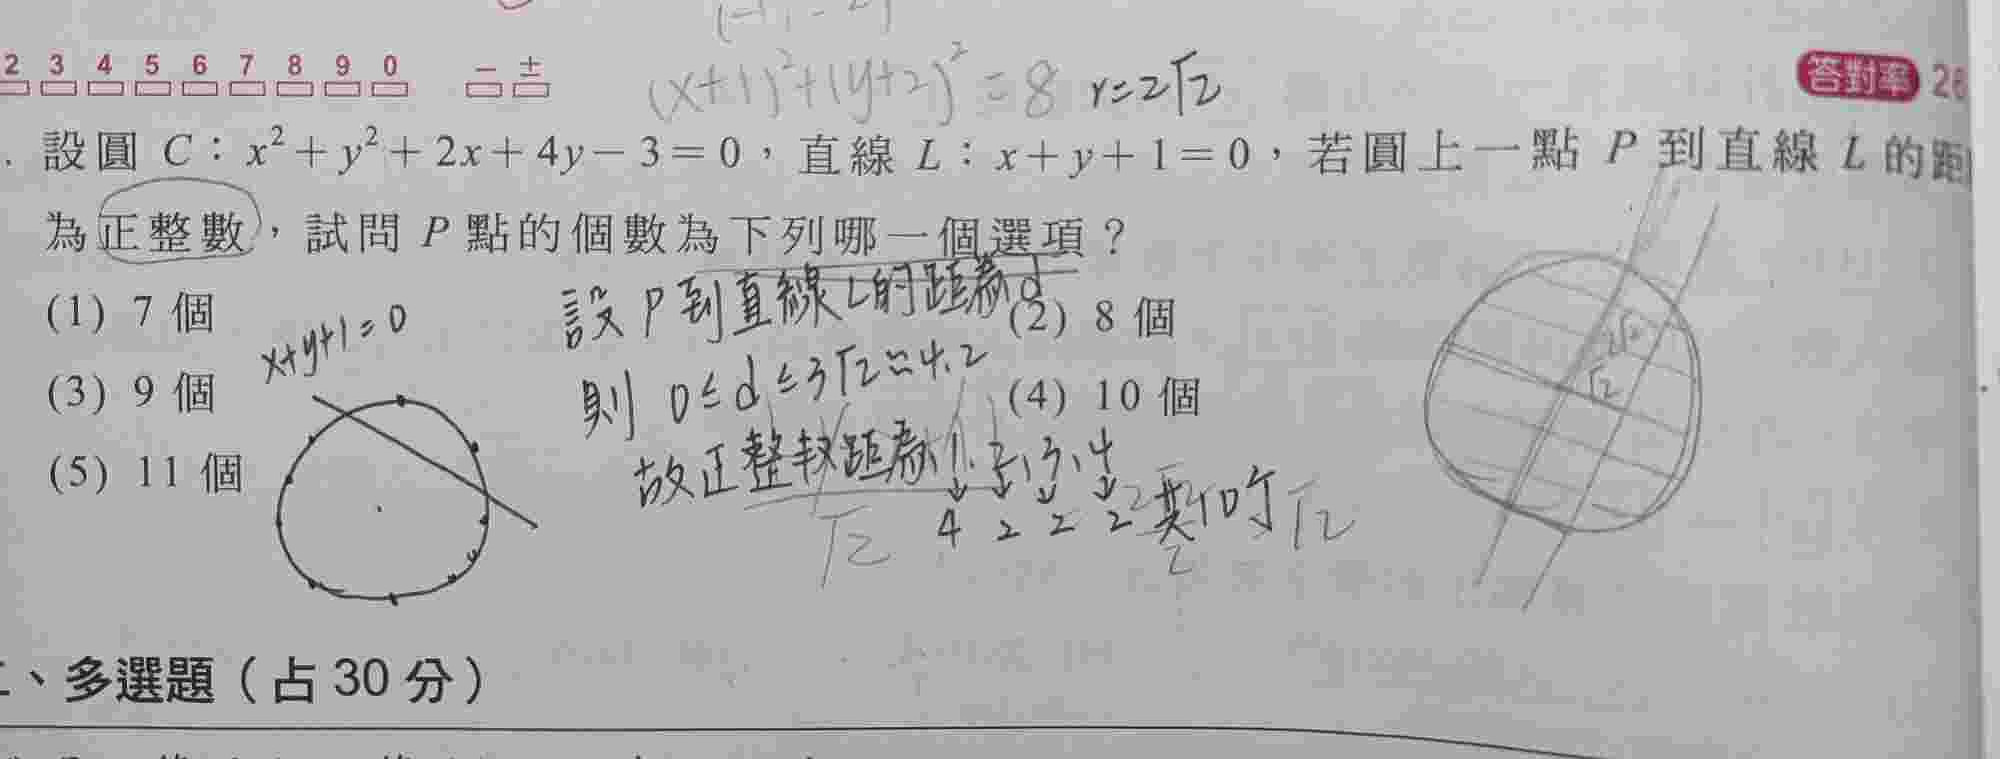 2 3 4 5 6 7 8 9 0 − ±
(x+1)²+(y+2)²=8 r=2√2
答對率 26
設圓 C:x²+y²+2x+4y−3=0,直線 L:x+y+1=0,若圓上一點 P 到直線 L 的距
為正整數,試問 P 點的個數為下列哪一個選項?
(1) 7 個
(2) 8 個
(3) 9 個
(4) 10 個
(5) 11 個
x+y+1=0
設 P 到直線 L 的距為 d
則 0≤d≤3√2≈4.2
故正整數距為 1、2、3、4
↓ ↓ ↓ ↓
4 2 2 2
√2
√2
2√2
√2
二、多選題(占 30 分)